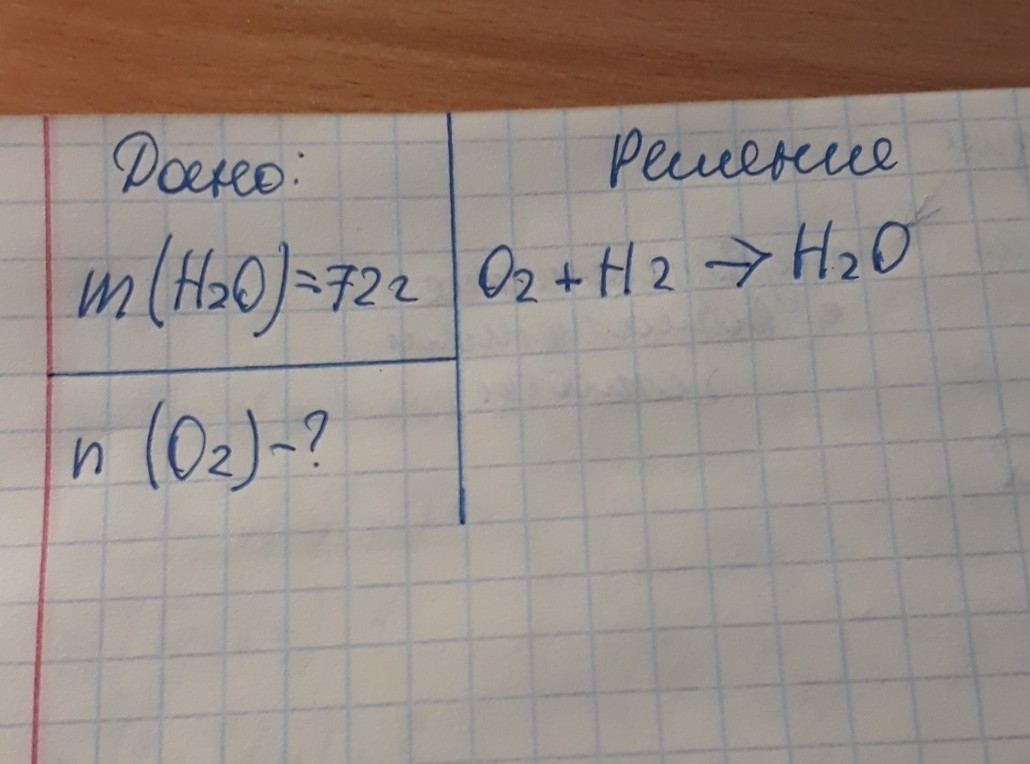 Дано:
m(H₂O)=72г
n (O₂)-?
Решение
O₂ + H₂ → H₂O